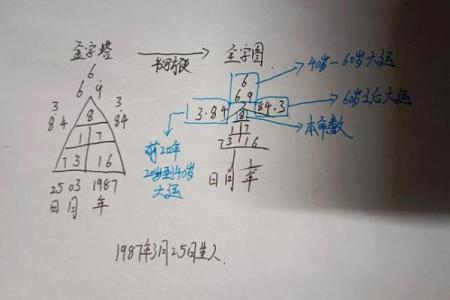 金字塔 书写方便 主字图
6
6 9
3 3
8 4 8 84
1 7
7 3 1 6
25 03 1987
日 月 年
40岁-60岁大运
6
6 9
3.84 8 84.3 60岁之后大运
1 7 本命数
7 3 1 6
前20年
20岁到40岁
大运
日 月 年
1987年3月25日生人